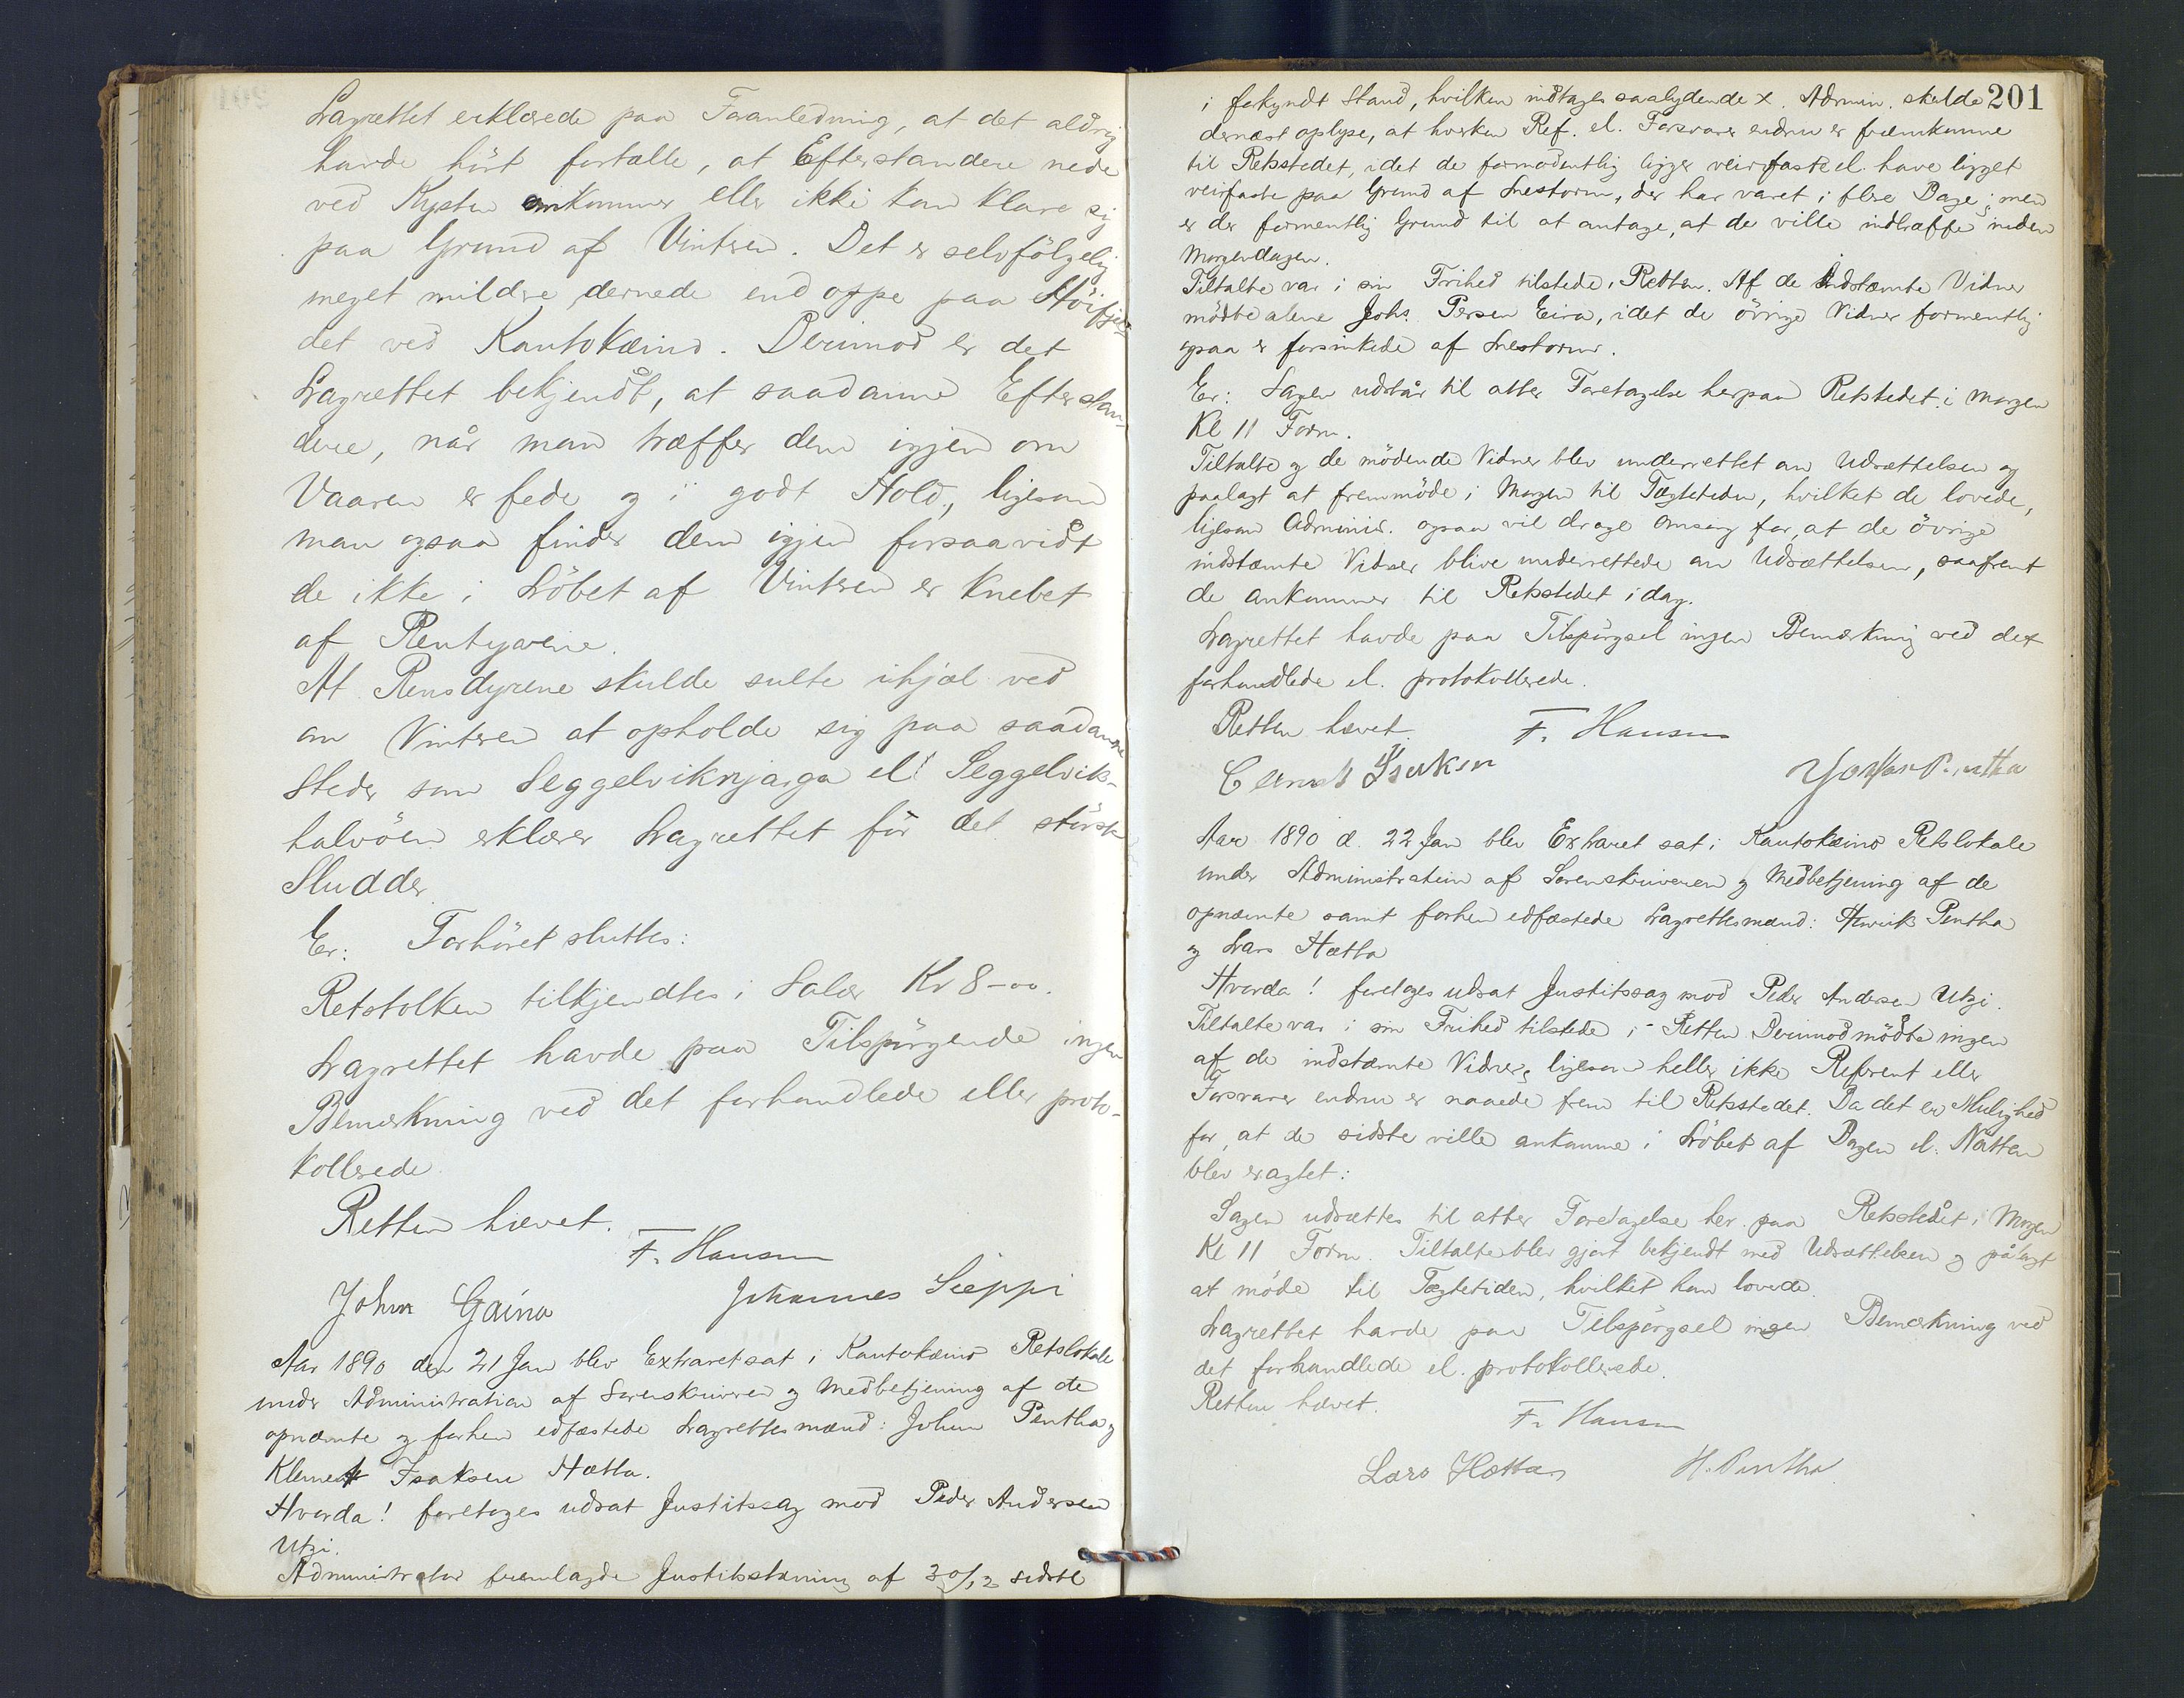 Lagrettet erklærede paa Foranledning, at det aldrig
havde hört fortælle, at Efterstandere nede
ved Kysten omkommer eller ikke kan klare sig
paa Grund af Vinteren. Det er selvfölgelig
meget mildre dernede end oppe paa Höifjel-
det ved Kautokeino. Derimod er det
Lagrettet bekjendt, at saadanne Efterstan-
dere, når man træffer dem igjen om
Vaaren er fede og i godt Hold, ligesom
man ogsaa finder dem igjen forsaavidt
de ikke i Löbet af Vinteren er knebet
af Rentyvene.
At Rensdyrene skulde sulte ihjæl ved
om Vinteren at opholde sig paa saadanne
Steder som Seggelviknjarga el. Seggelvik-
halvöen erklærer Lagrettet för det störste
Sludder.
Er: Forhöret sluttes:
Retstolken tilkjendtes i Salær Kr 8-00.
Lagrettet havde paa Tilspörgende ingen
Bemærkning ved det forhandlede eller proto-
kollerede.
Retten hævet.
F. Hansen
John Gaino Johannes Sieppi
Aar 1890 den 21 Jan blev Extraret sat i Kautokeino Retslokale
under Administration af Sorenskriveren og Medbetjening af de
opnævnte og forhen edfæstede Lagrettesmænd: Johan Pentha og
Klemet Isaksen Hætta.
Hvorda! foretoges udsat Justitssag mod Peder Andersen
Utzi.
Administrator fremlagde Justitsstævning af 30/12 sidstl
201
i forkyndt Stand, hvilken indtages saalydende X. Admin. skulde
dernæst oplyse, at hverken Ref. el. Forsvarer endnu er fremkomne
til Retsstedet, idet de formodentlig ligger veirfaste el. have ligget
veirfaste paa Grund af Snestorm, der har været i flere Dage; men
er der formentlig Grund til at antage, at de ville indtræffe inden
Morgendagen.
Tiltalte var i sin Frihed tilstede i Retten. Af de indstævnte Vidner
mödte alene Johs. Persen Eira, idet de övrige Vidner formentlig
ogsaa er forsinkede af Snestorm.
Er: Sagen udstår til atter Foretagelse herpaa Retstedet i Morgen
Kl 11 Form.
Tiltalte og de mödende Vidner blev underrettet om Udsættelsen og
paalagt at fremmöde i Morgen til Tægtetiden, hvilket de lovede,
ligesom Administ. ogsaa vil drage Omsorg for, at de övrige
indstævnte Vidner blive underrettede om Udsættelsen, saafremt
de ankommer til Retsstedet idag.
Lagrettet havde paa Tilspörgsel ingen Bemærkning ved det
forhandlede el. protokollerede.
Retten hævet. F. Hansen
Clemet Isaksen Johan Pentha
Aar 1890 d. 22 Jan blev Extraret sat i Kautokeino Retslokale
under Administration af Sorenskriveren og Medbetjening af de
opnævnte samt forhen edfæstede Lagrettesmænd: Henrik Pentha
og Lars Hætta
Hvorda! foretoges udsat Justitssag mod Peder Andersen Utzi.
Tiltalte var i sin Frihed tilstede i Retten Derimod mödte ingen
af de indstævnte Vidner, ligesom heller ikke Referent eller
Forsvarer endnu er naaede frem til Retsstedet. Da det er Mulighed
for, at de sidste ville ankomme i Löbet af Dagen el. Natten
blev eragtet:
Sagen udsættes til atter Foretagelse her paa Retsstedet i Morgen
Kl 11 Form. Tiltalte blev gjort bekjendt med Udsættelsen og pålagt
at möde til Tægtetiden, hvilket han lovede.
Lagrettet havde paa Tilspörgsel ingen Bemærkning ved
det forhandlede el. protokollerede.
Retten hævet.
F. Hansen
Lars Hætta H. Pentha